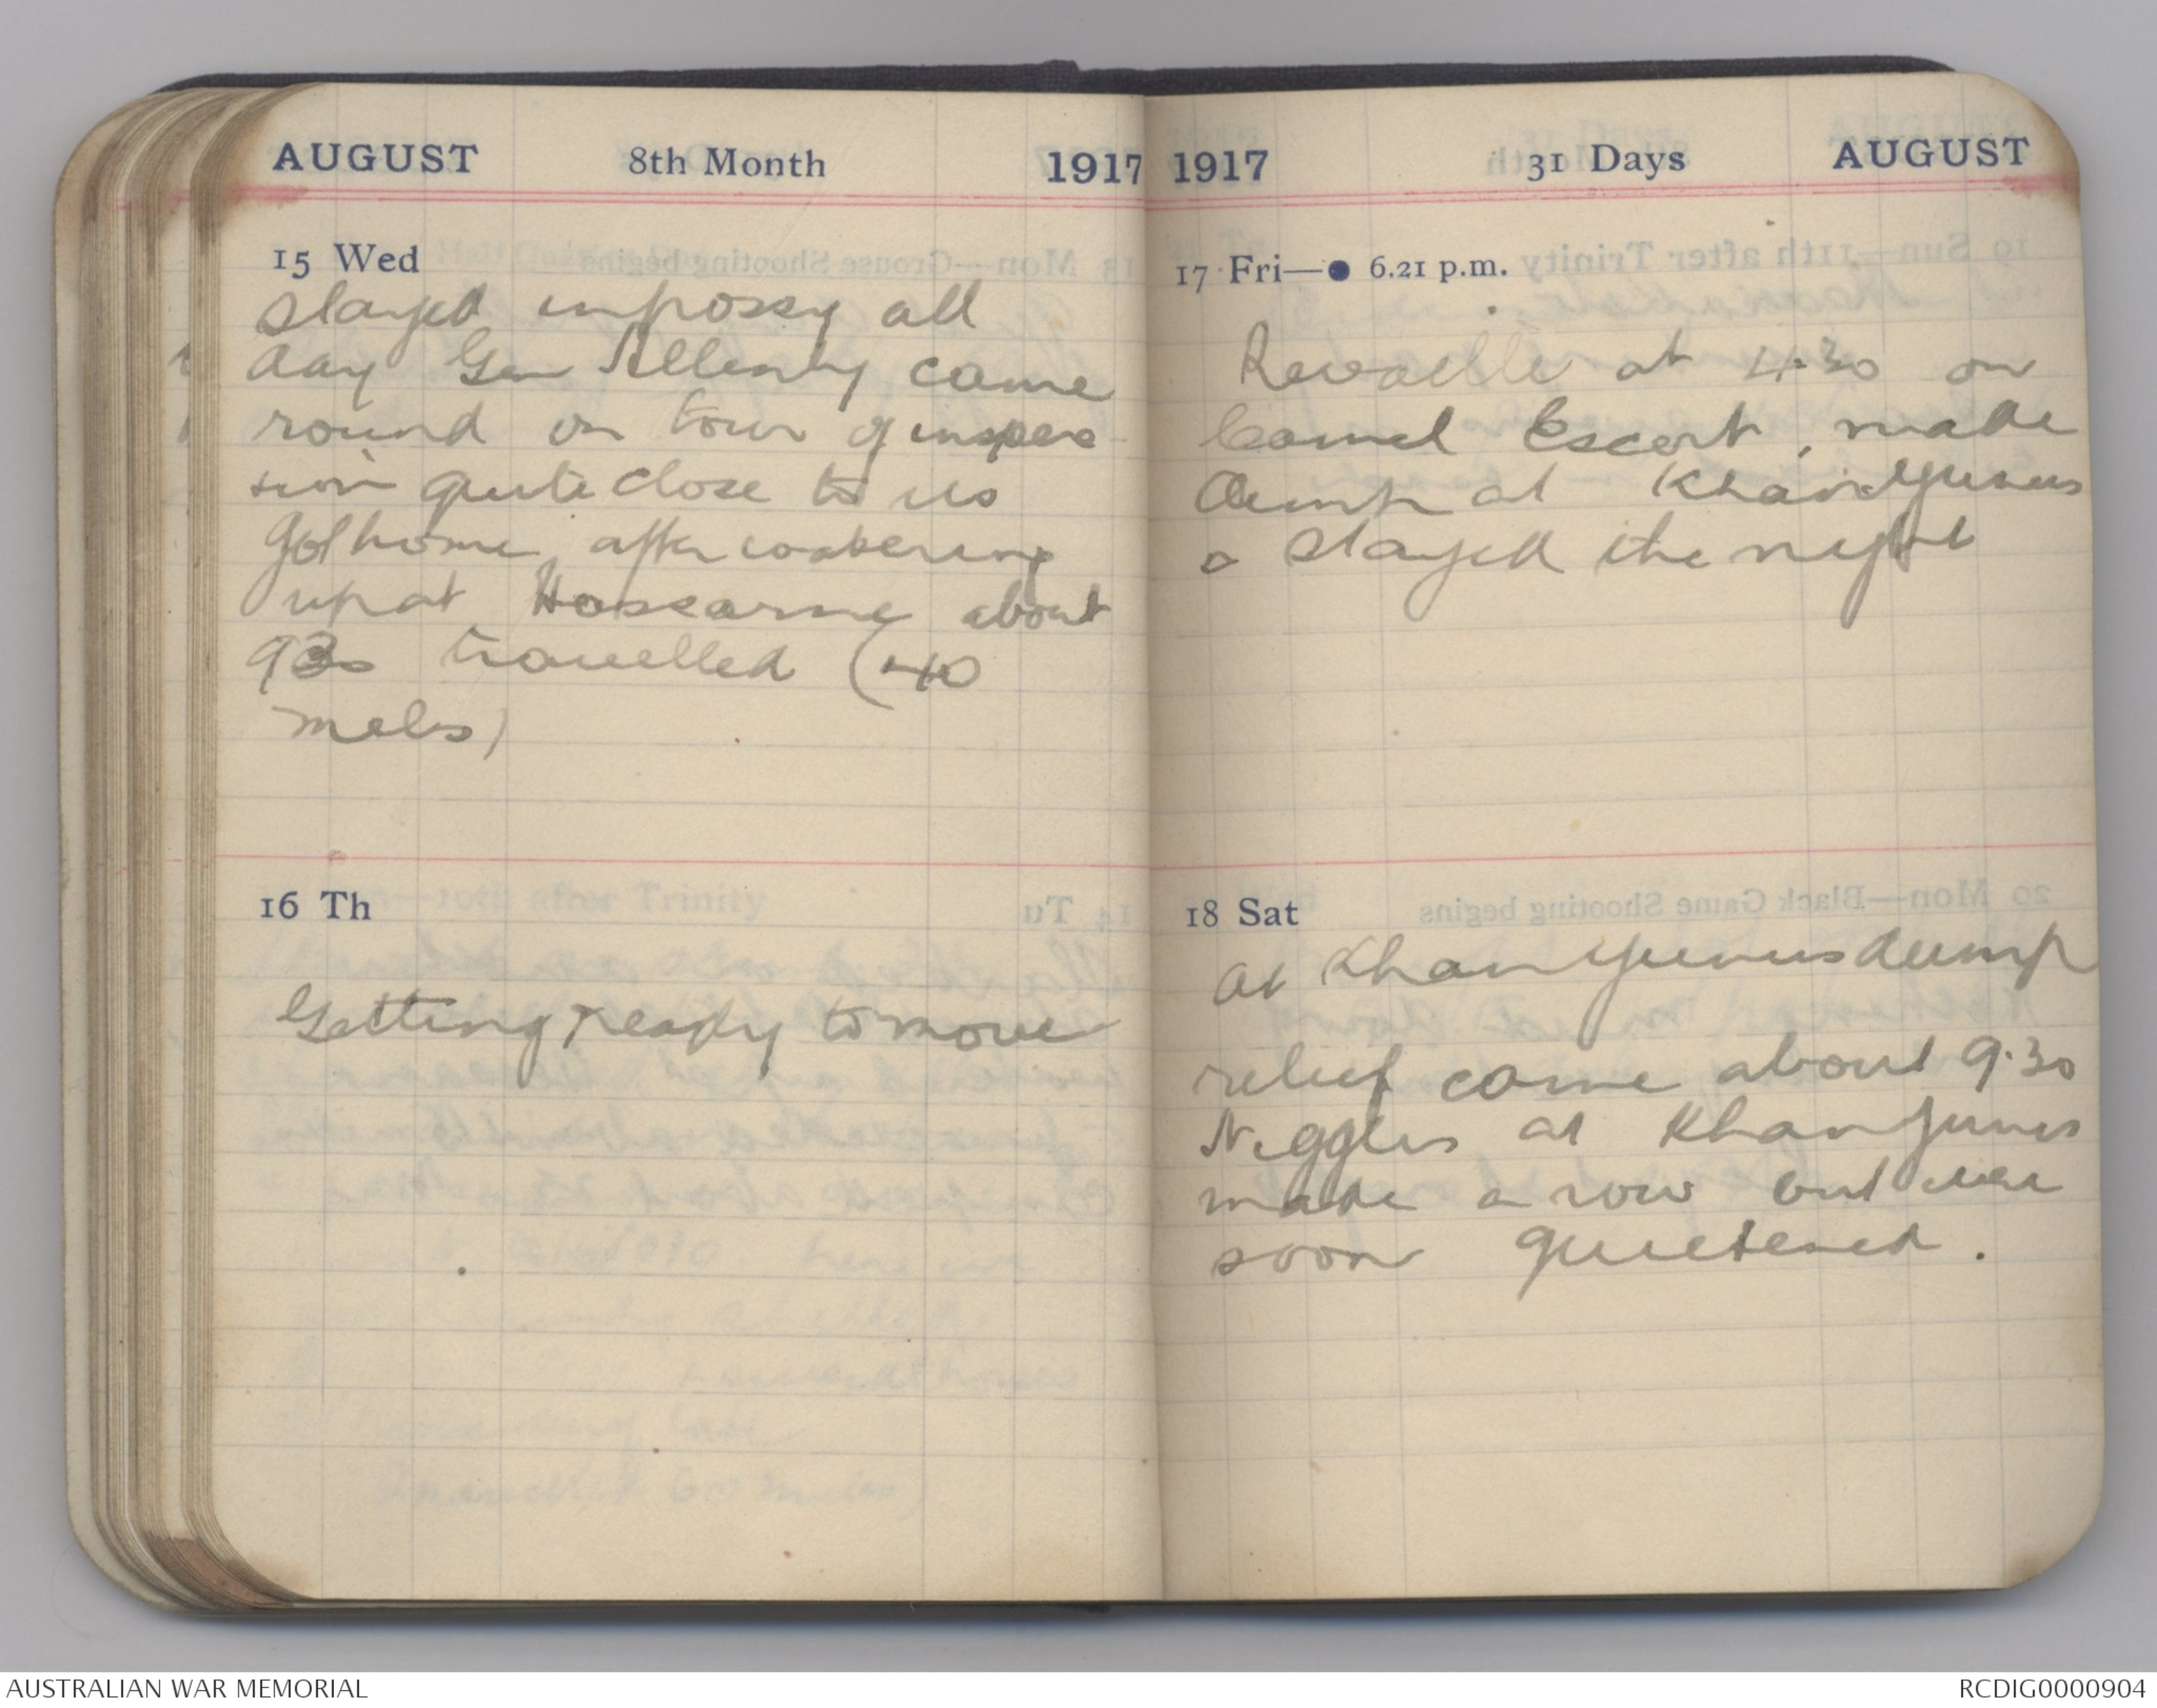 AUGUST 8th Month 1917
15 Wed
Stayed in possy all
day Gen Allenby came
round on tour of inspec-
tion quite close to us
Got home, after watering
up at Hossarme about
930 travelled (40
miles)
16 Th
Getting ready to move
1917 31 Days AUGUST
17 Fri—● 6.21 p.m.
Revaelle at 4.30 on
Camel Escort, made
Dump at Khan Yunus
& stayed the night
18 Sat
At Khan Yunus dump
relief came about 9.30
Niggles at Khan Junus
made a row but were
soon quietened.
AUSTRALIAN WAR MEMORIAL
RCDIG0000904